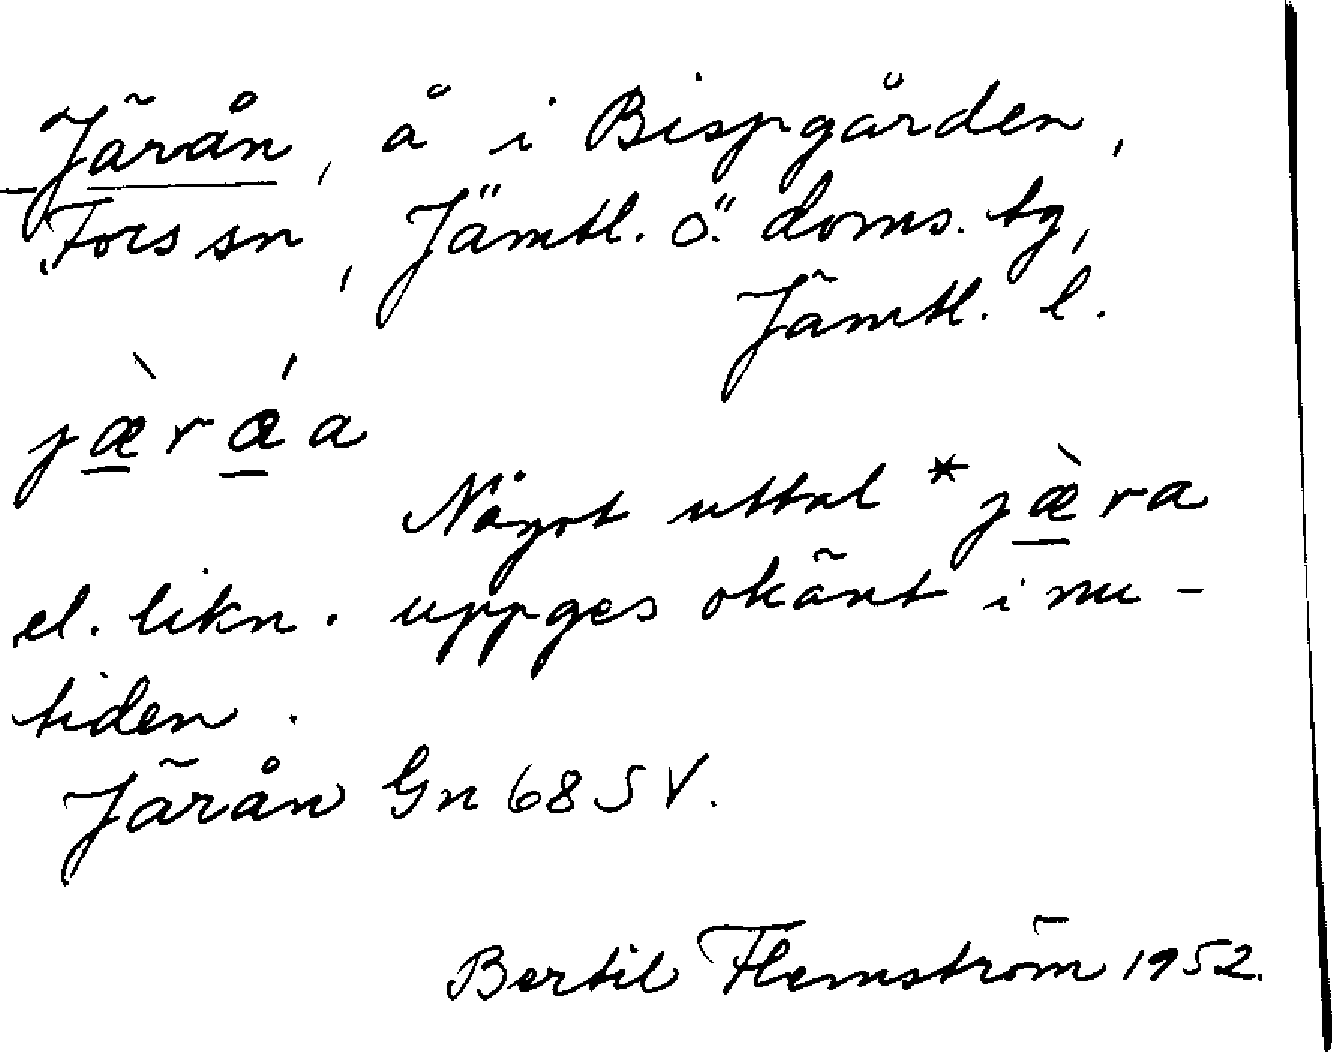 Järån, å i Bispgården,
Fors sn, Jämtl. ö. doms. tg,
Jämtl. l.
jæ̀rǽa
Något uttal *jæ̀ra
el. likn. uppges okänt i nu-
tiden.
Järån Gn 68 SV.
Bertil Flemström 1952.